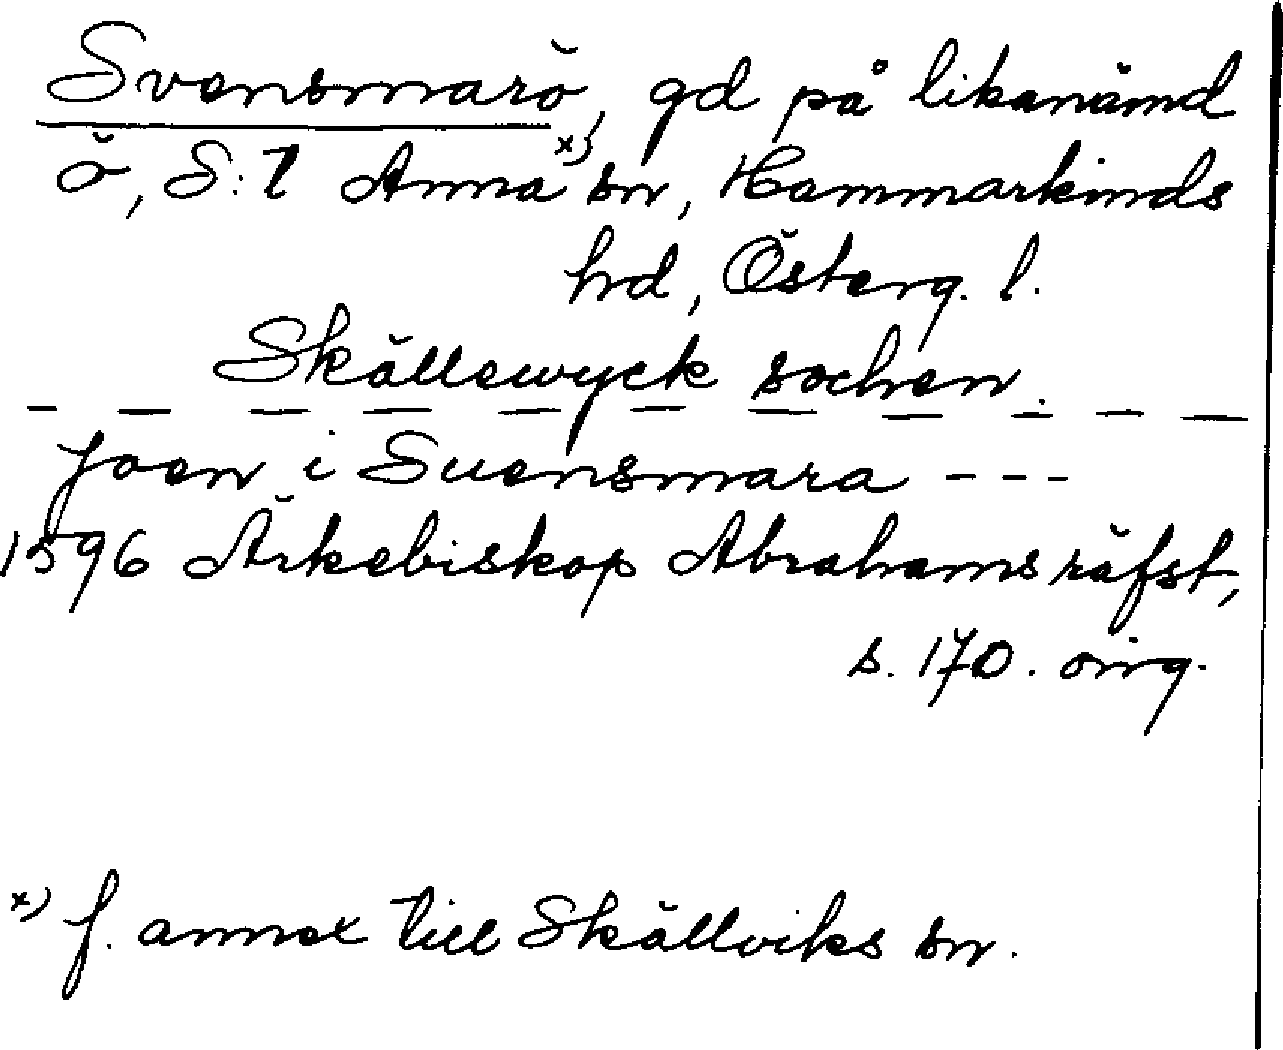 Svensmarö, gd på likanämd
ö, S:t Anna x) sn, Hammarkinds
hd, Österg. l.
Skällewyck sochen.
- - - - - - - - - - -
Joen i Suensmara - - -
1596 Ärkebiskop Abrahams räfst,
s. 170. orig.
x) f. annex till Skällviks sn.